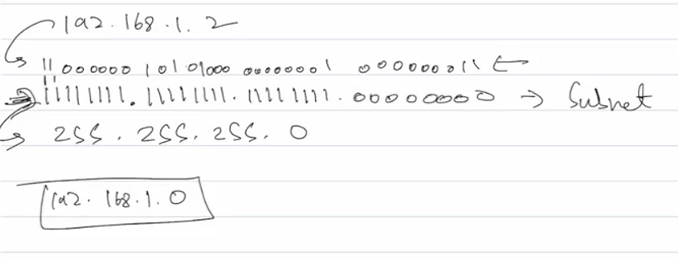 192.168.1.2
11000000 10101000 00000001 000000011
11111111.11111111.11111111.00000000 → Subnet
255.255.255.0
192.168.1.0